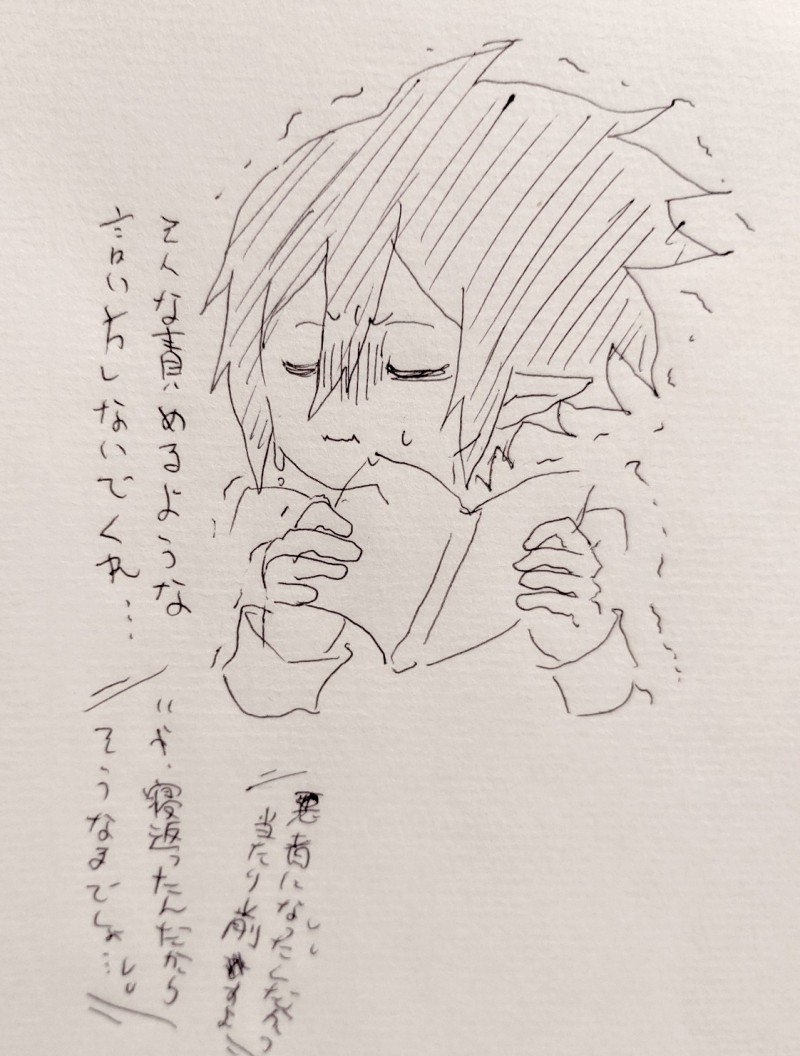 そんな責めるような
言い方しないでくれ…
いや、寝返ったんだから
そうなるでしょ…
悪者になったんだ
当たり前